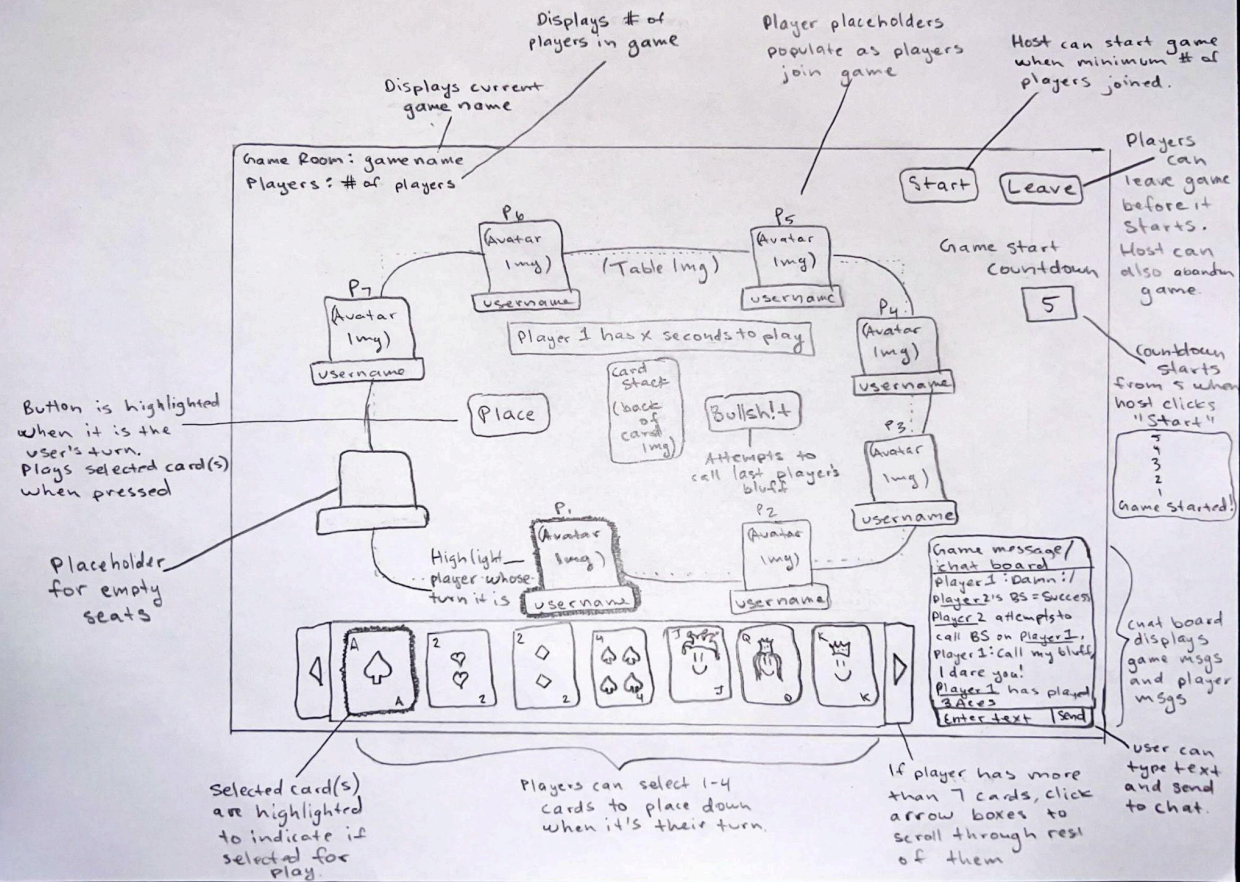 Displays # of
players in game
Player placeholders
populate as players
join game
Host can start game
when minimum # of
players joined.
Displays current
game name
Players
can
leave game
before it
starts.
Host can
also abandon
game.
Game Room: game name
Players: # of players
Start
Leave
Game start
countdown
5
Countdown
starts
from 5 when
host clicks
"Start"
5
4
3
2
1
Game Started!
P6
(Avatar
Img)
username
(Table Img)
P5
(Avatar
Img)
username
P7
(Avatar
Img)
username
P4
(Avatar
Img)
username
Player 1 has x seconds to play
Card
Stack
(back
of
card
Img)
Place
Bullsh!t
Attempts to
call last player's
bluff
P3
(Avatar
Img)
username
Button is highlighted
when it is the
user's turn.
Plays selected card(s)
when pressed
Placeholder
for empty
seats
Highlight
player whose
turn it is
P1
(Avatar
Img)
username
P2
(Avatar
Img)
username
Game message/
chat board
Player 1: Damn :/
Player 2's BS = Success
Player 2 attempts to
call BS on Player 1.
Player 1: Call my bluff,
I dare you!
Player 1 has played
3 Aces
Enter text
Send
chat board
displays
game msgs
and player
msgs
A
A
2
2
2
2
4
4
J
J
Q
Q
K
K
Selected card(s)
are highlighted
to indicate if
selected for
play.
Players can select 1-4
cards to place down
when it's their turn.
If player has more
than 7 cards, click
arrow boxes to
scroll through rest
of them
user can
type text
and send
to chat.